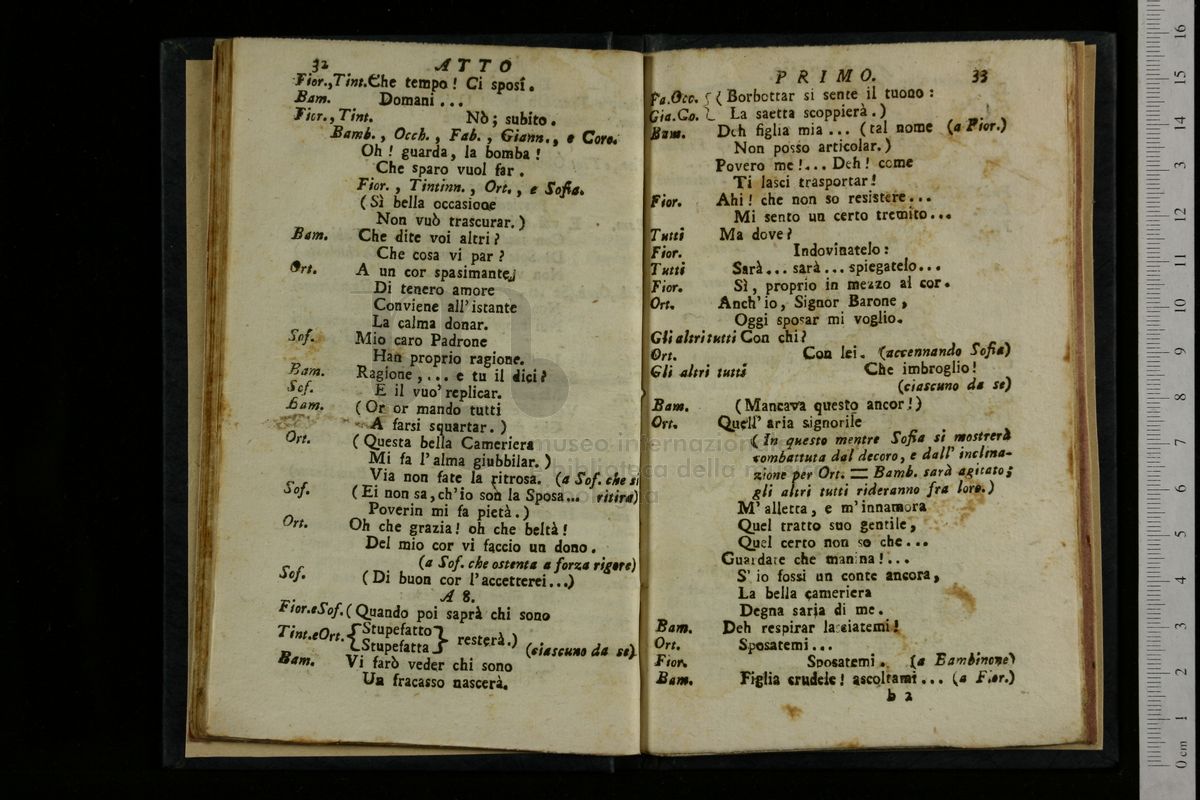 32 ATTO
Fior., Tint. Che tempo! Ci sposi.
Bam. Domani...
Fior., Tint. Nò; subito.
Bamb., Occh., Fab., Giann., e Coro.
Oh! guarda, la bomba!
Che sparo vuol far.
Fior., Tintinn., Ort., e Sofia.
(Sì bella occasione
Non vuò trascurar.)
Bam. Che dite voi altri?
Che cosa vi par?
Ort. A un cor spasimante,
Di tenero amore
Conviene all'istante
La calma donar.
Sof. Mio caro Padrone
Han proprio ragione.
Bam. Ragione,... e tu il dici?
Sof. E il vuo' replicar.
Bam. (Or or mando tutti
A farsi squartar.)
Ort. (Questa bella Cameriera
Mi fa l'alma giubbilar.)
Via non fate la ritrosa. (a Sof. che si
Sof. (Ei non sa, ch'io son la Sposa... ritira)
Poverin mi fa pietà.)
Ort. Oh che grazia! oh che beltà!
Del mio cor vi faccio un dono.
(a Sof. che ostenta a forza rigore)
Sof. (Di buon cor l'accetterei...)
A 8.
Fior. e Sof. (Quando poi saprà chi sono
Tint. e Ort. {Stupefatto} resterà.)
{Stupefatta} (ciascuno da se)
Bam. Vi farò veder chi sono
Un fracasso nascerà.
PRIMO. 33
Fa. Occ. { (Borbottar si sente il tuono:
Gia. Co. { La saetta scoppierà.)
Bam. Deh figlia mia... (tal nome (a Fior.)
Non posso articolar.)
Povero me!... Deh! come
Ti lasci trasportar!
Fior. Ahi! che non so resistere...
Mi sento un certo tremito...
Tutti Ma dove?
Fior. Indovinatelo:
Tutti Sarà... sarà... spiegatelo...
Fior. Sì, proprio in mezzo al cor.
Ort. Anch'io, Signor Barone,
Oggi sposar mi voglio.
Gli altri tutti Con chi?
Ort. Con lei. (accennando Sofia)
Gli altri tutti Che imbroglio!
(ciascuno da se)
Bam. (Mancava questo ancor!)
Ort. Quell' aria signorile
(In questo mentre Sofia si mostrerà
combattuta dal decoro, e dall' inclina-
zione per Ort. = Bamb. sarà agitato;
gli altri tutti rideranno fra loro.)
M' alletta, e m'innamora
Quel tratto suo gentile,
Quel certo non so che...
Guardate che manina!...
S' io fossi un conte ancora,
La bella cameriera
Degna saria di me.
Bam. Deh respirar lasciatemi!
Ort. Sposatemi...
Fior. Sposatemi. (a Bambinone)
Bam. Figlia crudele! ascoltami... (a Fior.)
b 2
museo internazionale
biblioteca della musica